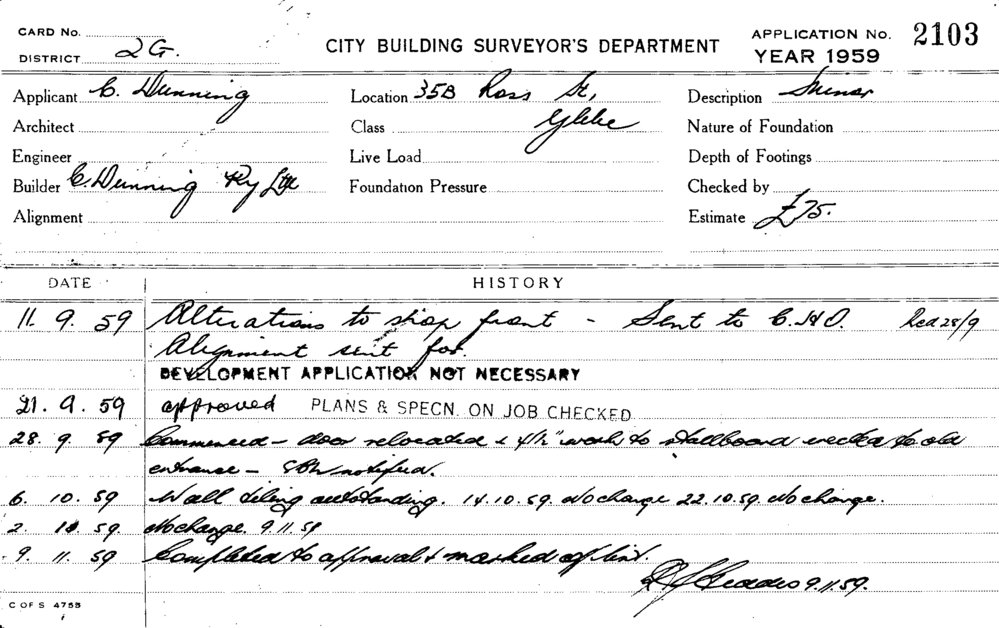 CARD No.
DISTRICT 2G.
CITY BUILDING SURVEYOR'S DEPARTMENT
APPLICATION No. 2103
YEAR 1959
Applicant C. Dunning
Location 35B Ross St,
Description Minor
Architect
Class Glebe
Nature of Foundation
Engineer
Live Load
Depth of Footings
Builder C. Dunning Pty Ltd
Foundation Pressure
Checked by
Alignment
Estimate £75.
DATE HISTORY
11. 9. 59 Alterations to shop front - Sent to C.H.O. Red 28/9
Alignment sent for.
DEVELOPMENT APPLICATION NOT NECESSARY
21. 9. 59 approved PLANS & SPECN. ON JOB CHECKED
28. 9. 59 Commenced - door relocated & 4½" work to stallboard erected to old
entrance - notified.
6. 10. 59 Wall tiling outstanding. 14.10.59. No change 22.10.59. No change.
2. 11. 59. No change. 9.11.59
9. 11. 59 Completed to approval & marked off list.
9.11.59.
C OF S 4753